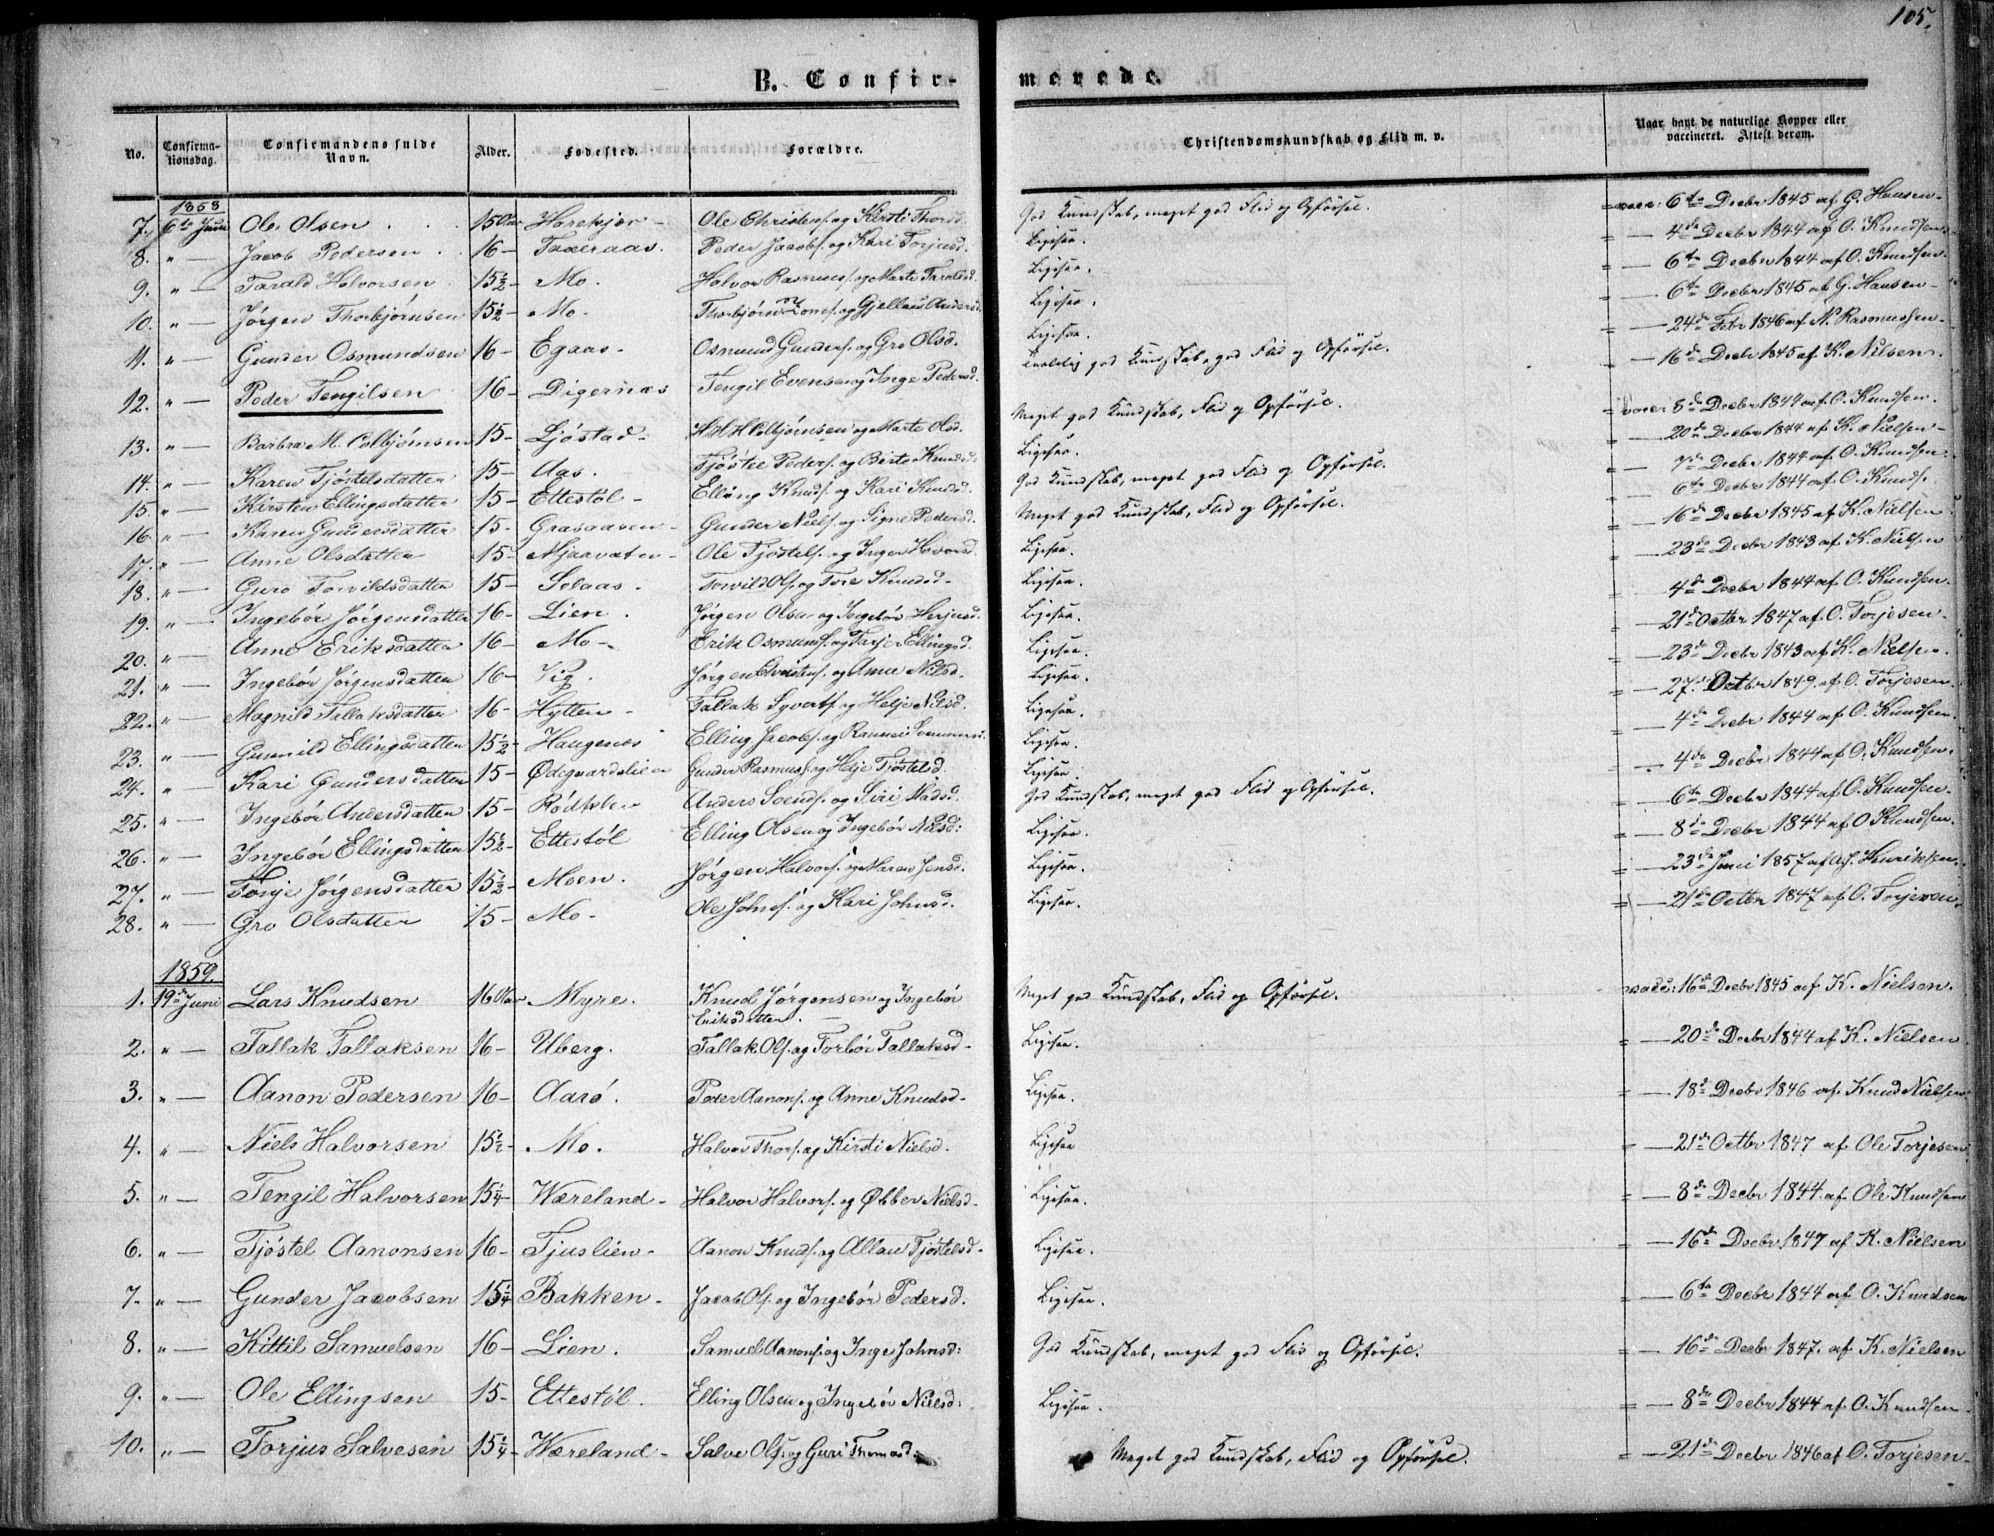 105.
B. Confirmerede.
No. Confirmationsdag. Confirmandens fulde Navn. Alder. Fødested. Forældre. Christendomskundskab og Flid m. v. Naar havt de naturlige Kopper eller vaccineret. Attest derom.
1858
7. 6te Juni Ole Olsen 15 Aar Harekjær Ole Christens. og Kirsti God Kundskab, meget god Flid og Opförsel. vacc: 6te Decbr 1845 af G. Hansen
8. " — Jacob Pedersen 16 — Peder Jacobs. og Kari Torjusd. Ligesaa. = — 4de Decbr 1844 af O. Knudsen
9. " — Tarald Halvorsen 15½ — Mo. Halvor Rasmuss. og Marte Taralsd. Ligesaa. = — 6te Decbr 1844 af O. Knudsen
10. " — Jørgen Thorbjørnsen 15½ — Mo. Thorbjørn og Gjellau Andersd. Ligesaa. = — 6te Decbr 1845 af G. Hansen
11. " — Gunder Osmundsen 16 — Egaas Osmund Gunders. og Gro Olsd. Ligesaa. = — 24de Febr 1846 af N. Rasmussen
12. " — Peder Tengilsen 16 — Digernæs Tengil Evensen og Inge Pedersd. Temmelig god Kundskab, god Flid og Opförsel. = — 16de Decbr 1845 af K. Nilsen
13. " — Barbra M. Colbjørnsen 15 — Ljøstad Colbjørnsen og Marte Olsd. Meget god Kundskab, Flid og Opförsel. vacc: 8de Decbr 1844 af O. Knudsen
14. " — Karen Tjøstelsdatter 15 — Aas. Tjøstel Peders. og Birte Knudsd. Ligesaa. = — 20de Decbr 1844 af K. Nielsen
15. " — Kirsten Ellingsdatter 15 — Ettestöl Elling Knuds. og Kari Knudsd. God Kundskab, meget god Flid og Opförsel. = — 7de Decbr 1844 af O. Knudsen
16. " — Karen Gundersdatter 15 — Grasaasen Gunder Niels. og Signe Pedersd. Meget god Kundskab, Flid og Opförsel. = — 6te Decbr 1844 af O. Knuds.
17. " — Anne Olsdatter 15 — Mjaavatn Ole Tjøstels. og Inger Ligesaa. = — 16de Decbr 1845 af K. Nielsen
18. " — Guro Torvildsdatter 15 — Selaas Torvild Ols. og Tore Knudsd. Ligesaa. = — 23de Decbr 1843 af K. Nielsen
19. " — Ingebør Jørgensdatter 16 — Lien. Jørgen Olsen og Ingebør Herjusd. Ligesaa. = — 4de Decbr 1844 af O. Knudsen
20. " — Anne Eriksdatter 16 — Mo Erik Osmunds. og Tarjer Ellingsd. Ligesaa. = — 21de Octbr 1847 af O. Torjesen
21. " — Ingebør Jørgensdatter 16 — Vig. Jørgen Christens. og Anne Nilsd. Ligesaa. = — 23de Decbr 1843 af K. Nielsen
22. " — Magnild Tallaksdatter 16 — Hytten Tallak Syverts. og Helje Nilsd. Ligesaa. = — 27de Octbr 1849 af O. Torjesen
23. " — Gunnild Ellingsdatter 15½ Haugenes Elling Jacobs. og Ligesaa. = — 4de Decbr 1844 af O. Knudsen
24. " — Kari Gundersdatter 15 — Ødegaardslien Gunder Rasmuss. og Helje Tjøstelsd. Ligesaa. = — 4de Decbr 1844 af O. Knudsen
25. " — Ingebør Andersdatter 15 — Rødklev Anders Svends. og Siri Madsd. God Kundskab, meget god Flid og Opförsel. = — 6te Decbr 1844 af O. Knudsen
26. " — Ingebør Ellingsdatter 15½ — Ettestöl Elling Olsen og Ingebør Nilsd: Ligesaa. = — 8de Decbr 1844 af O. Knudsen
27. " — Torje Jørgensdatter 15½ — Moen. Jørgen Halvors. og Maren Jensd. Ligesaa. = — 23de Juni 1857 af Henriksen
28. " — Gro Olsdatter 15 — Mo Ole Johns. og Kari Johnsd. Ligesaa. = — 21de Octbr 1847 af O. Torjesen
1859.
1. 19de Juni Lars Knudsen 16 Aar Myre. Knud Jørgensen og Ingebør Eriksdatter. Meget god Kundskab, Flid og Opförsel. vacc: 16de Decbr 1845 af K. Nielsen.
2. " — Tallak Tallaksen 16 — Uberg. Tallak Ols. og Torbør Tallaksd Ligesaa. = — 20de Decbr 1844 af K. Nielsen
3. " — Aanon Pedersen 16 — Aarö. Peder Aanons. og Anne Knudsd Ligesaa. = — 18de Decbr 1846 af Knud Nielsen
4. " — Niels Halvorsen 15½ — Mo. Halvor Thors. og Kirsti Nielsd. Ligesaa = — 21de Octbr 1847 af Ole Torjesen
5. " — Tengil Halvorsen 15¼ — Wæreland Halvor Halvors. og Øbber Nielsd Ligesaa. = — 8de Decbr 1844 af Ole Knudsen
6. " — Tjøstel Aanonsen 16 — Tjuslien Aanon Knuds. og Allau Tjøstelsd Ligesaa. = — 16de Decbr 1847 af K. Nielsen
7. " — Gunder Jacobsen 15¼ Bakken Jacob Ols. og Ingebør Pedersd. Ligesaa. = — 6te Decbr 1844 af O. Knudsen
8. " — Kittil Samuelsen 16 — Lien. Samuel Aanons. og Inge Johnsd: God Kundskab, meget god Flid og Opförsel. = — 16de Decbr 1847. af K. Nielsen
9. " — Ole Ellingsen 15 — Ettestöl. Elling Olsen og Ingebør Nielsd: Ligesaa. = — 8de Decbr 1844 af O. Knudsen
10. " — Torjus Salvesen 15¼ — Wæreland Salve Ols. og Guri Thomasd: Meget god Kundskab, Flid og Opförsel. = — 21de Decbr 1846 af O. Torjesen